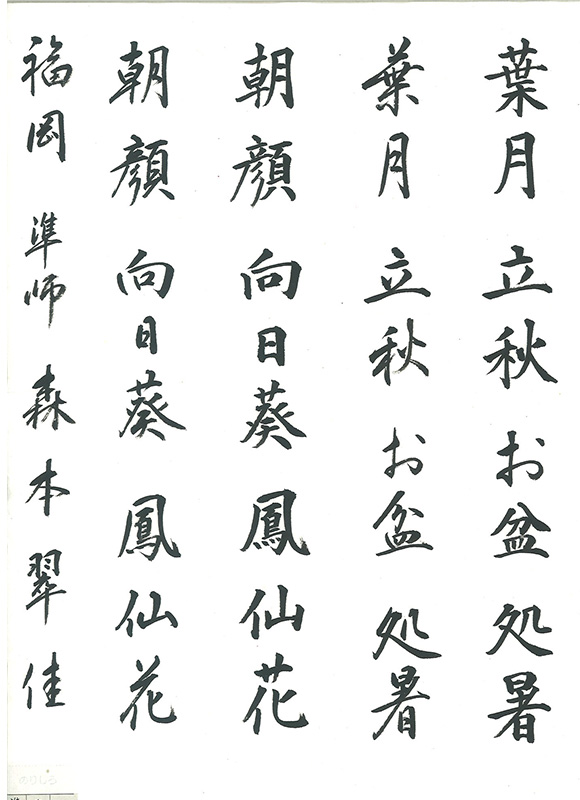 葉月 立秋 お盆 処暑
葉月 立秋 お盆 処暑
朝顔 向日葵 鳳仙花
朝顔 向日葵 鳳仙花
福岡 準師 森本翠佳
のりしろ